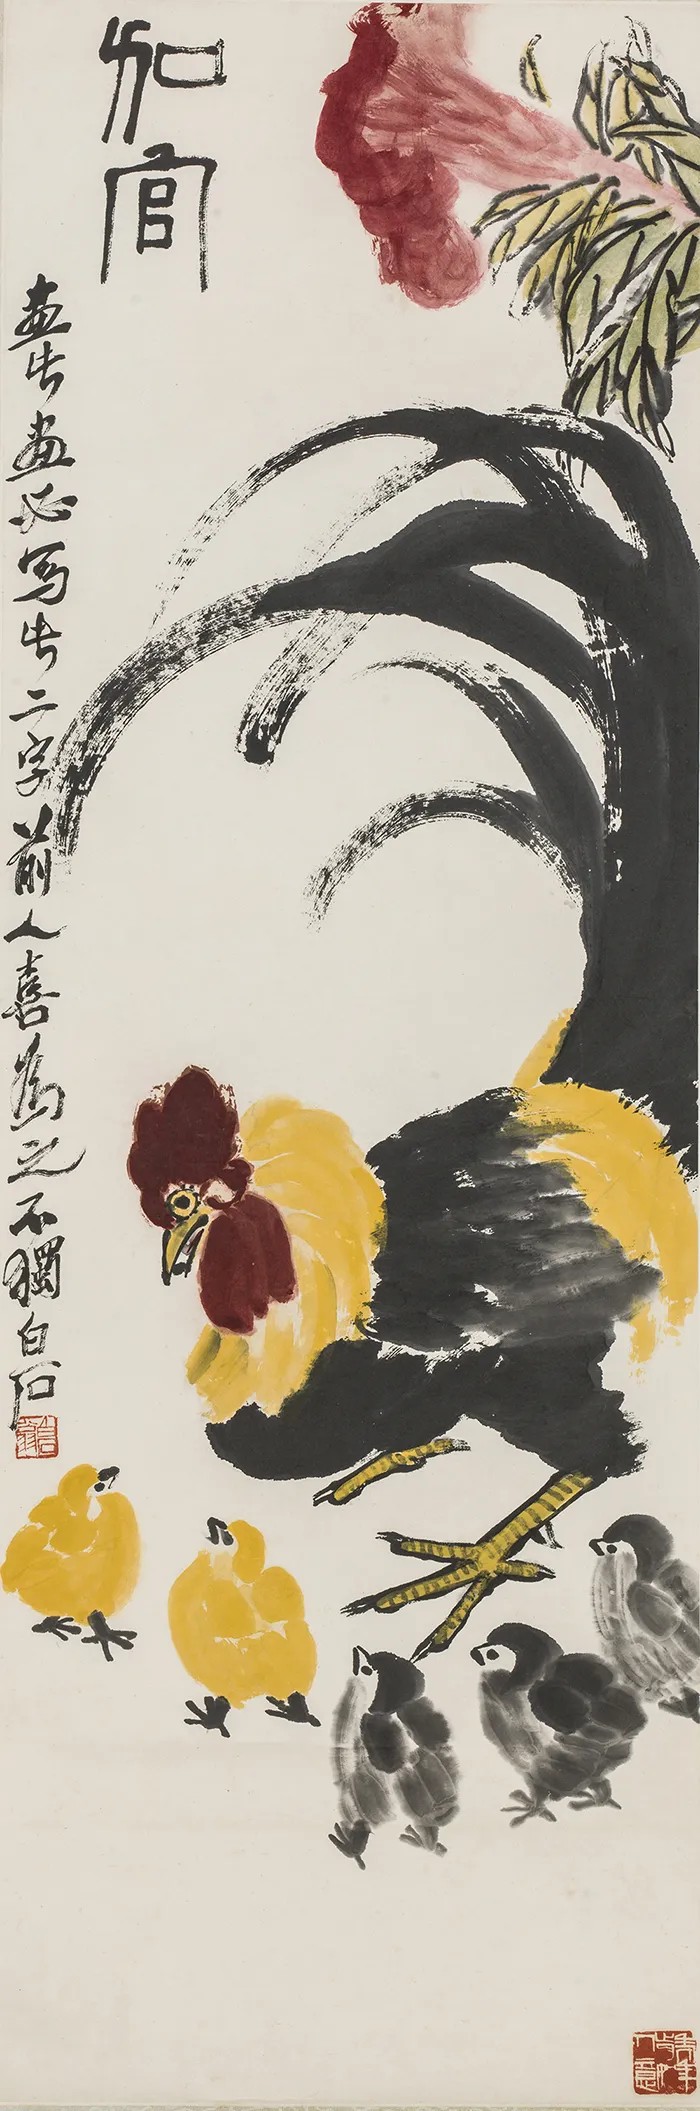 加官
畫此畫必写此二字前人喜為之不獨白石